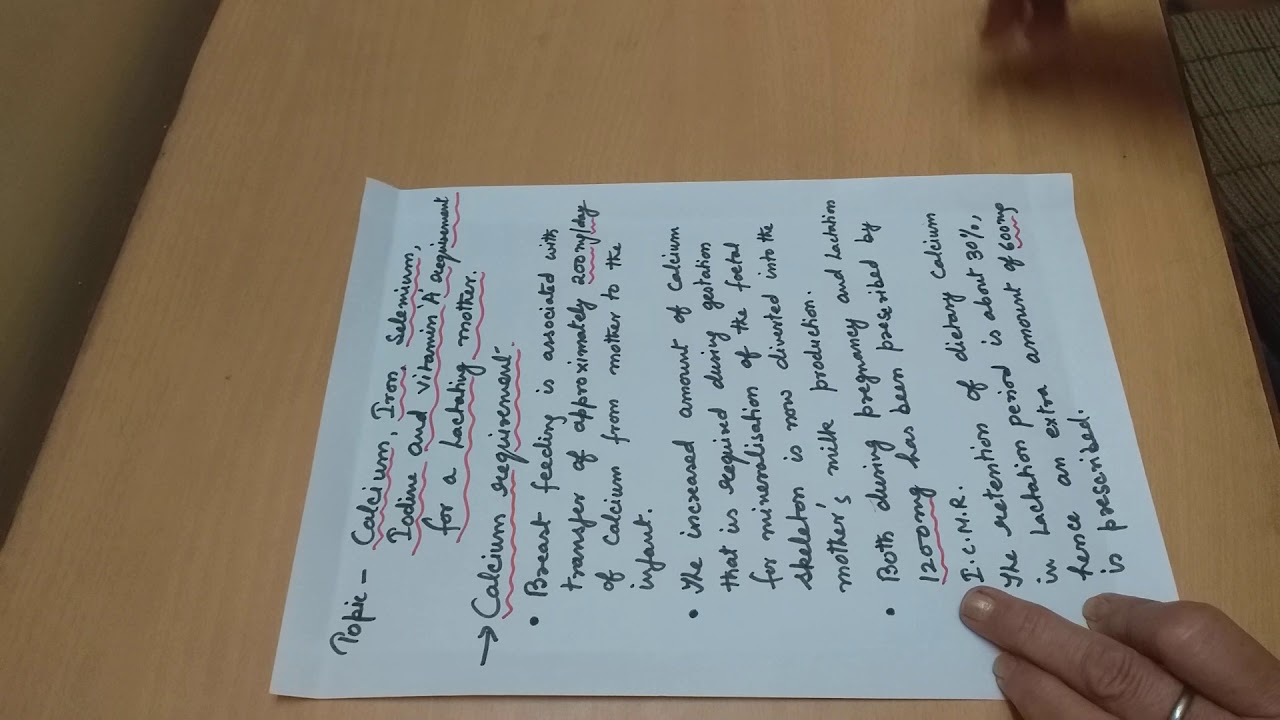 Topic - Calcium, Iron, Selenium,
Iodine and vitamin 'A' requirement
for a Lactating mother.
→ Calcium requirement -
• Breast feeding is associated with
transfer of approximately 200 mg/day
of calcium from mother to the
infant.
• The increased amount of Calcium
that is required during gestation
for mineralisation of the foetal
skeleton is now diverted into the
mother's milk production.
• Both during pregnancy and Lactation
1200mg has been prescribed by
I.C.M.R.
The retention of dietary Calcium
in Lactation period is about 30%,
hence an extra amount of 600mg
is prescribed.